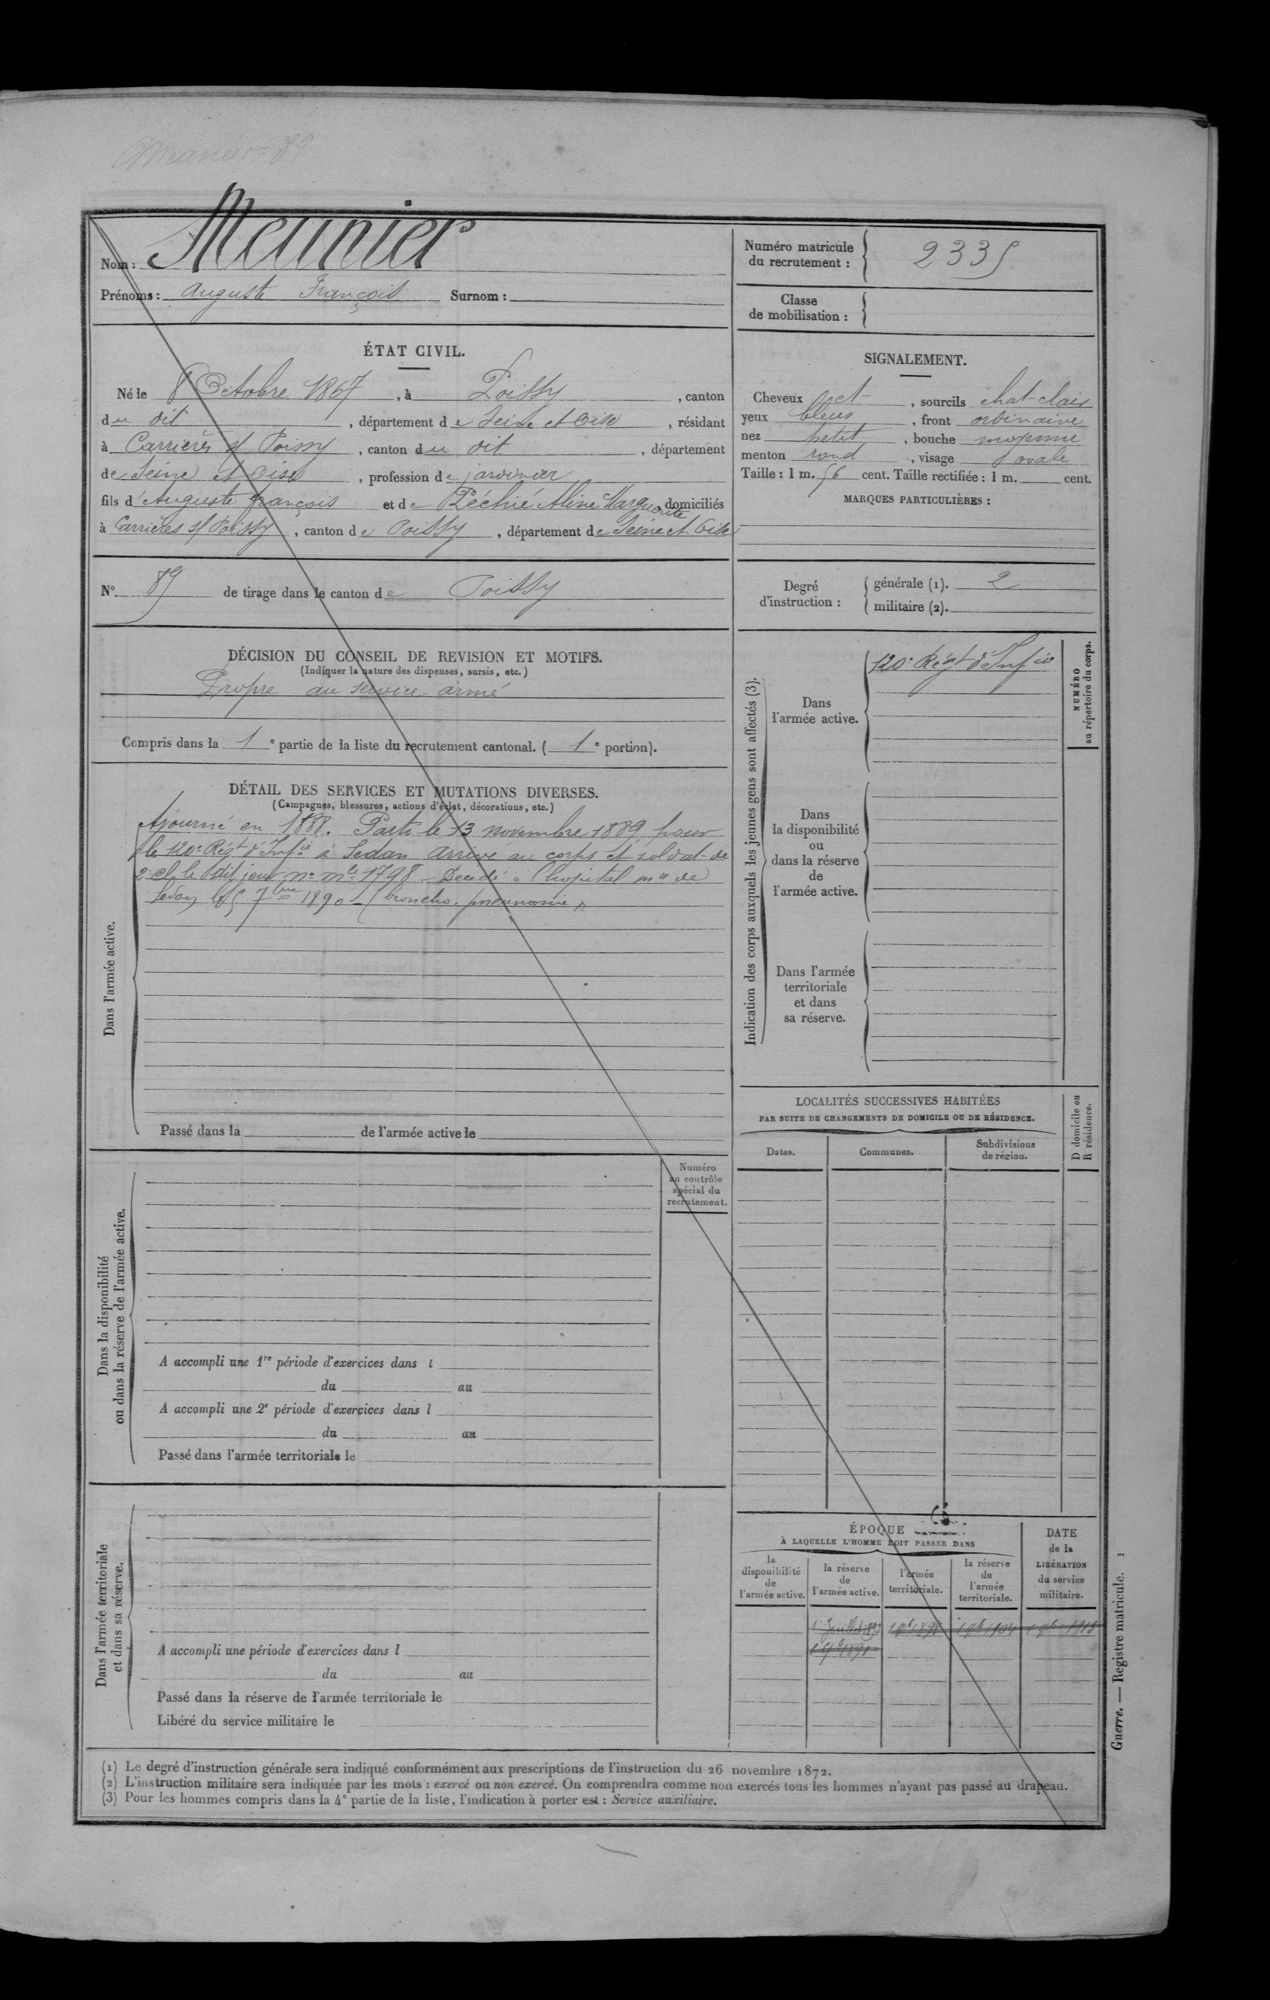 Meunier 89
Nom : Meunier
Prénoms : Auguste François Surnom :
Numéro matricule du recrutement : 2335
Classe de mobilisation :
ÉTAT CIVIL.
Né le 8 Octobre 1867, à Poissy, canton
du dit, département de Seine et Oise, résidant
à Carrières s/ Poissy, canton du dit, département
de Seine et Oise, profession de jardinier
fils d'Auguste François et de Péchié Aline Marguerite domiciliés
à Carrières s/ Poissy, canton de Poissy, département de Seine et Oise
SIGNALEMENT.
Cheveux et, sourcils chat clair
yeux bleus, front ordinaire
nez petit, bouche moyenne
menton rond, visage ovale
Taille : 1 m. 56 cent. Taille rectifiée : 1 m. cent.
MARQUES PARTICULIÈRES :
N° 89 de tirage dans le canton de Poissy
Degré d'instruction : générale (1). 2
militaire (2).
DÉCISION DU CONSEIL DE REVISION ET MOTIFS.
(Indiquer la nature des dispenses, sursis, etc.)
Propre au service armé
Compris dans la 1e partie de la liste du recrutement cantonal. (1e portion).
DÉTAIL DES SERVICES ET MUTATIONS DIVERSES.
(Campagnes, blessures, actions d'éclat, décorations, etc.)
Dans l'armée active.
Ajourné en 1888. Parti le 13 novembre 1889 pour
le 120e Régt d'Infie à Sedan arrivé au corps et soldat de
2e cl. le dit jour no mle 1798. Décédé à l'hopital mre de
Sedan le 5 7bre 1890 (broncho-pneumonie)
Passé dans la de l'armée active le
Indication des corps auxquels les jeunes gens sont affectés (3).
Dans l'armée active. 120e Régt d'Infie
NUMÉRO au répertoire du corps.
Dans la disponibilité ou dans la réserve de l'armée active.
Dans l'armée territoriale et dans sa réserve.
LOCALITÉS SUCCESSIVES HABITÉES
PAR SUITE DE CHANGEMENTS DE DOMICILE OU DE RÉSIDENCE.
Dates. Communes. Subdivisions de région. D domicile ou R résidence.
Dans la disponibilité ou dans la réserve de l'armée active.
Numéro au contrôle spécial du recrutement.
A accompli une 1re période d'exercices dans l
du au
A accompli une 2e période d'exercices dans l
du au
Passé dans l'armée territoriale le
Dans l'armée territoriale et dans sa réserve.
A accompli une période d'exercices dans l
du au
Passé dans la réserve de l'armée territoriale le
Libéré du service militaire le
ÉPOQUE
À LAQUELLE L'HOMME DOIT PASSER DANS
la disponibilité de l'armée active.
la réserve de l'armée active.
l'armée territoriale.
la réserve de l'armée territoriale.
DATE de la LIBÉRATION du service militaire.
(1) Le degré d'instruction générale sera indiqué conformément aux prescriptions de l'instruction du 26 novembre 1872.
(2) L'instruction militaire sera indiquée par les mots : exercé ou non exercé. On comprendra comme non exercés tous les hommes n'ayant pas passé au drapeau.
(3) Pour les hommes compris dans la 4e partie de la liste, l'indication à porter est : Service auxiliaire.
Guerre. — Registre matricule. 1